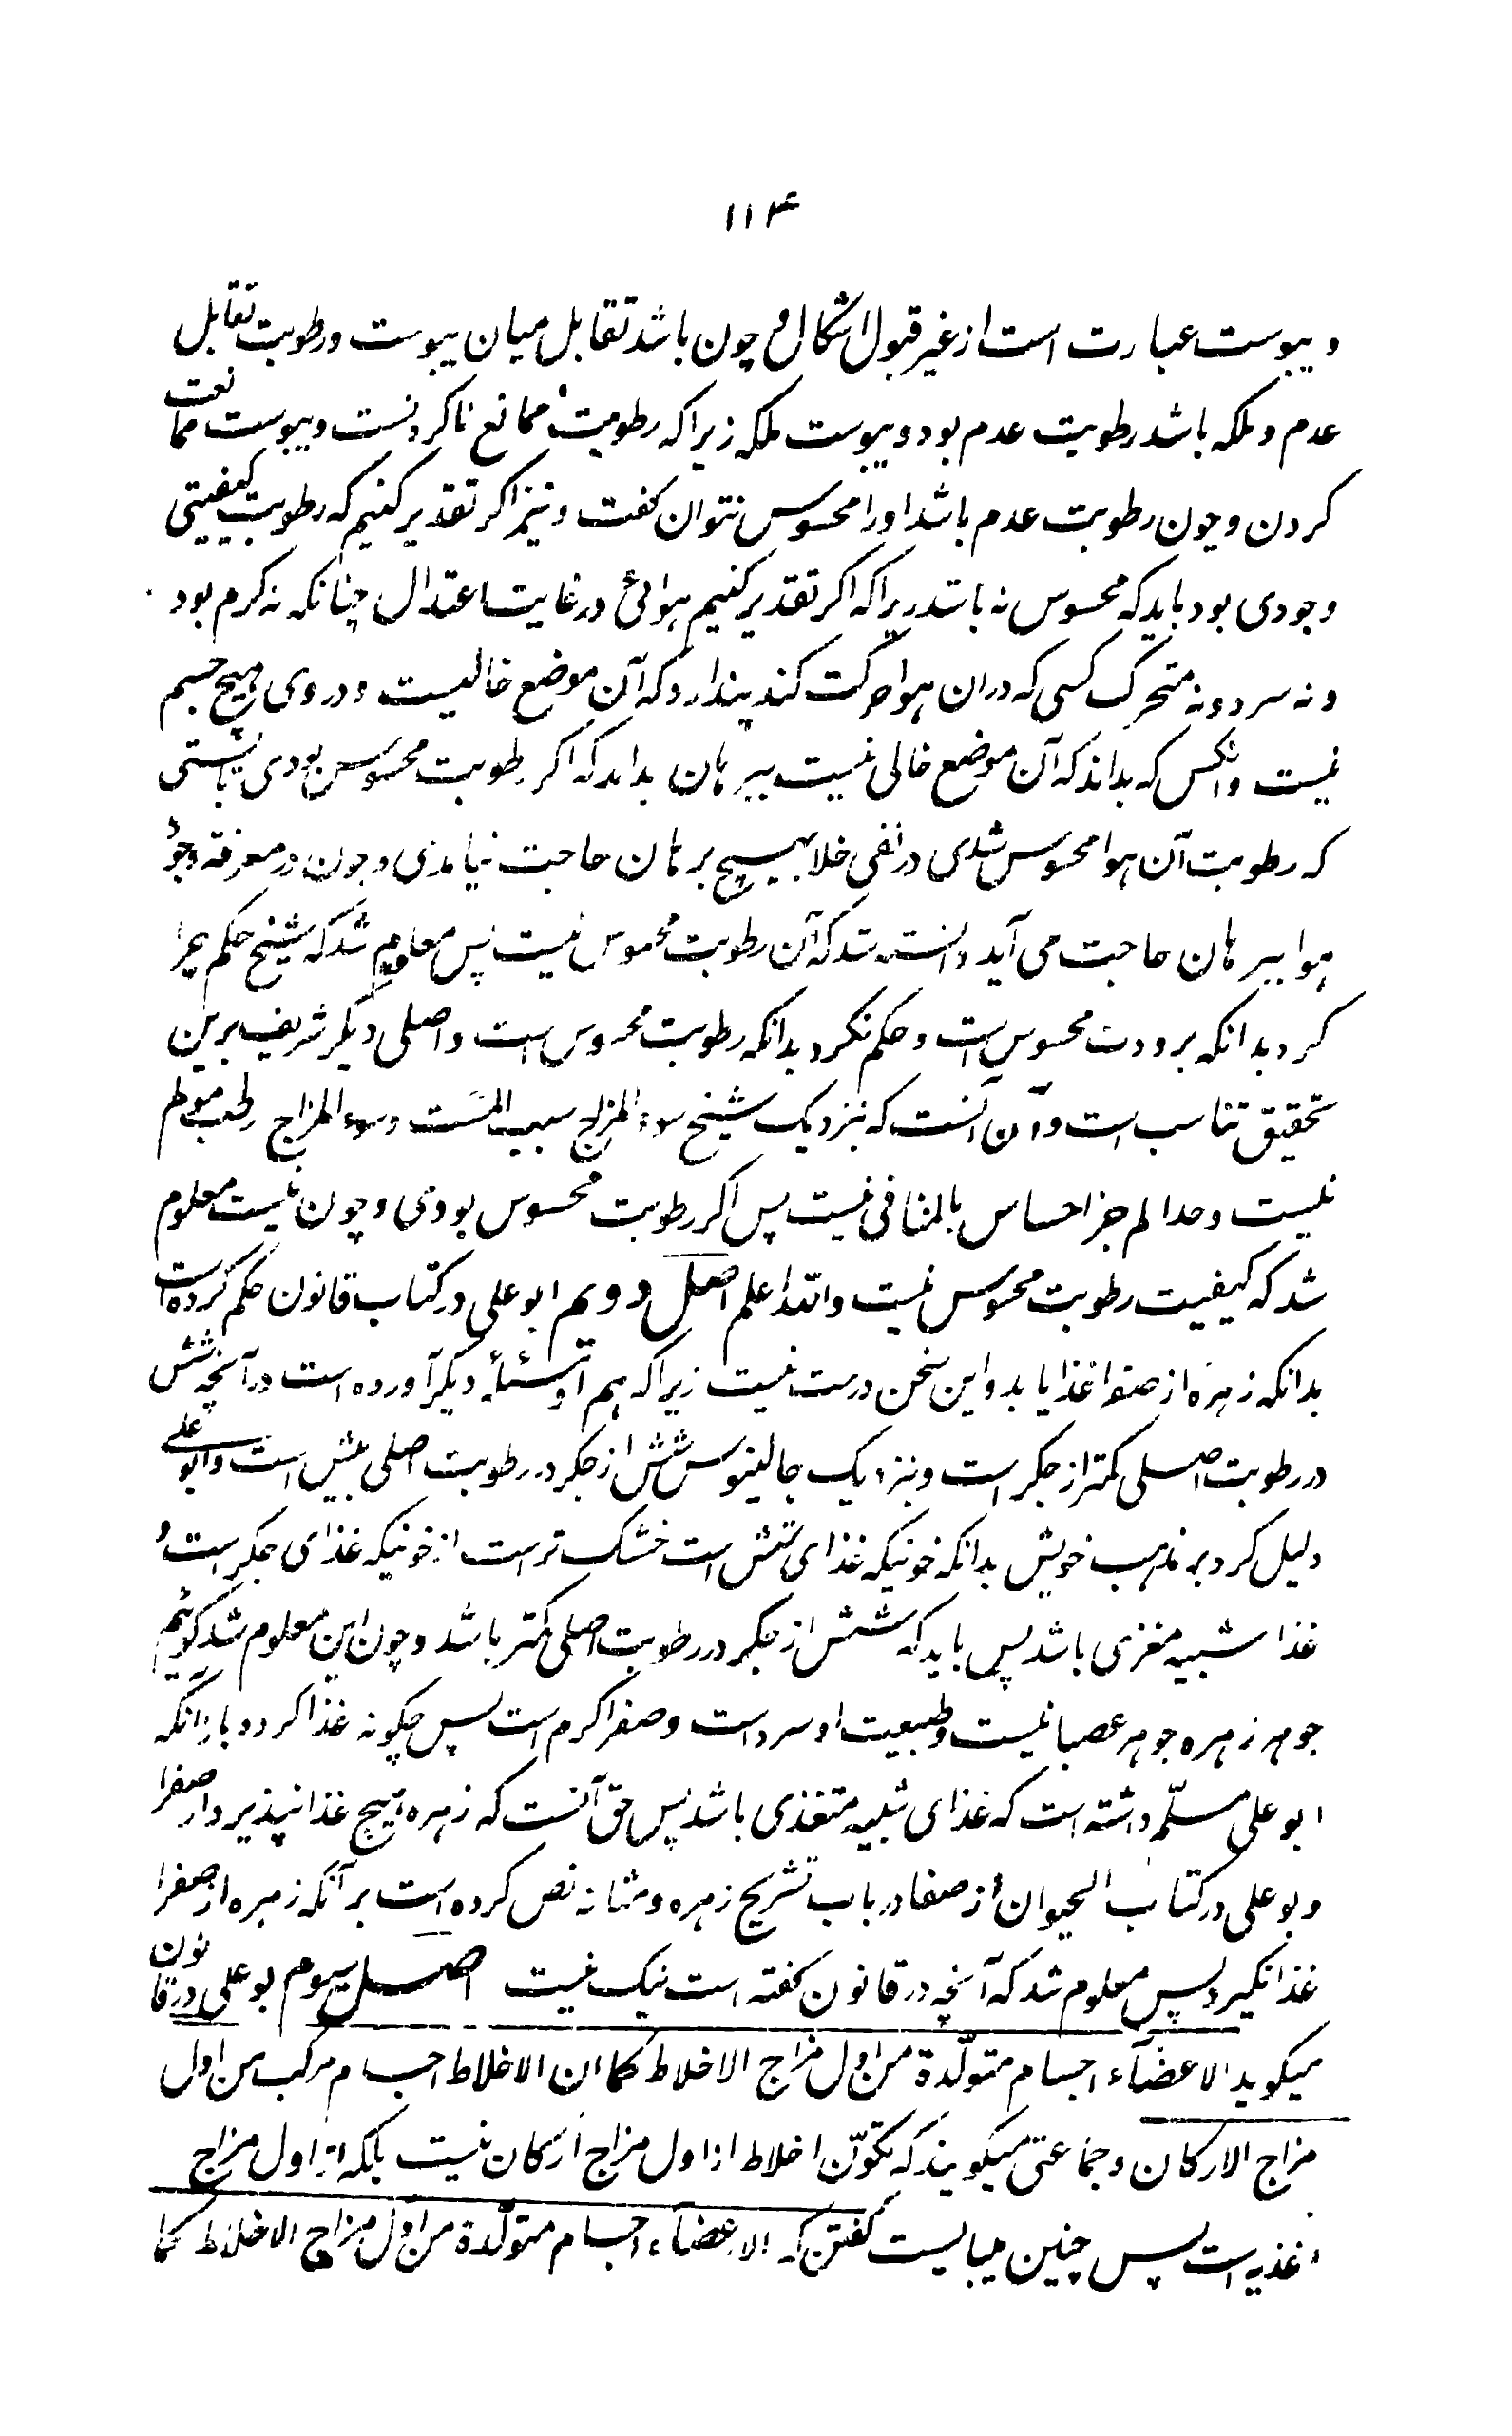 ۱۱۴
و یبوست عبارت است از غیر قبول اشکال و چون باشد تقابل میان یبوست و رطوبت تقابل
عدم و ملکه باشد رطوبت عدم بود و یبوست ملکه زیرا که رطوبت ممانع ناکردنست و یبوست ممانعت
کردن و چون رطوبت عدم باشد اورا محسوس نتوان کفت و نیز اکر تقدیر کنیم که رطوبت کیفیتی
وجودی بود باید که محسوس نه باشد زیرا که اکر تقدیر کنیم هوائی در غایت اعتدال چنانکه نه کرم بود
و نه سرد و نه متحرک کسی که دران هوا حرکت کند پندارد که آن موضع خالیست و در وی هیچ جسم
نیست و انکس که بداند که آن موضع خالی نیست ببرهان بداند که اکر رطوبت محسوس بودی بایستی
که رطوبت آن هوا محسوس شدی در نفی خلا بهیچ برهان حاجت نیامدی و چون در معرفة وجود
هوا ببرهان حاجت می آید دانسته شد که آن رطوبت محسوس نیست پس معلوم شد که شیخ حکم چرا
کرد بدانکه برودت محسوس است و حکم نکرد بدانکه رطوبت محسوس است و اصلی دیکر شریف برین
تحقیق تناسب است و آن آنست که بنزدیک شیخ سوء المزاج سبب المست و سوء المزاج رطب مولم
نیست و حد الم جز احساس بالمنافی نیست پس اکر رطوبت محسوس بودی و چون نیست معلوم
شد که کیفیت رطوبت محسوس نیست والله اعلم اصل دویم ابو علی در کتاب قانون حکم کرده است
بدانکه زهره از صفرا غذا یابد و این سخن درست نیست زیرا که هم او مسئله دیکر آورده است در آنچه شش
در رطوبت اصلی کمتر از جکر است و بنزدیک جالینوس شش از جکر در رطوبت اصلی بیش است و ابو علی
دلیل کرد بر مذهب خویش بدانکه خونیکه غذای شش است خشک تر است از خونیکه غذای جکر است و
غذا شبیه مغزی باشد پس باید که شش از جکر در رطوبت اصلی کمتر باشد و چون این معلوم شد کوئیم
جوهر زهره جوهر عصبانیست و طبیعت او سرد است و صفرا کرم است پس چکونه غذا کردد با زانکه
ابو علی مسلّم داشته است که غذای شبیه متغذی باشد پس حق آنست که زهره هیچ غذا نپذیرد از صفرا
و بو علی در کتاب الحیوان از صفا در باب تشریح زهره و مثانه نص کرده است بر آنکه زهره از صفرا
غذا نکیرد پس معلوم شد که آنچه در قانون کفته است نیک نیست اصل سیوم بو علی در قانون
میکوید الاعضآء اجسام متولّدة من اول مزاج الاخلاط کما ان الاخلاط اجسام مرکب من اول
مزاج الارکان و جماعتی میکویند که تکوّن اخلاط از اول مزاج ارکان نیست بلکه از اول مزاج
اغذیه است پس چنین میبایست کفتن که الاعضآء اجسام متولّدة من اوّل مزاج الاخلاط کما